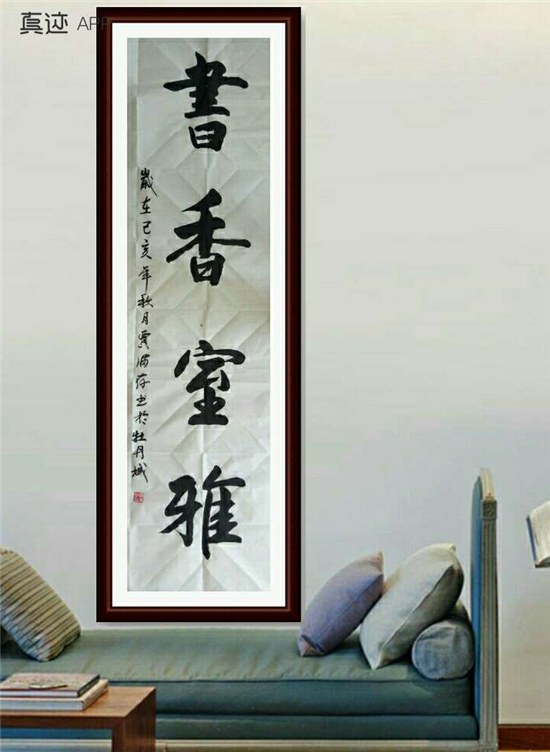 真迹 APP
書香室雅
歲在己亥年秋月书於牡丹城